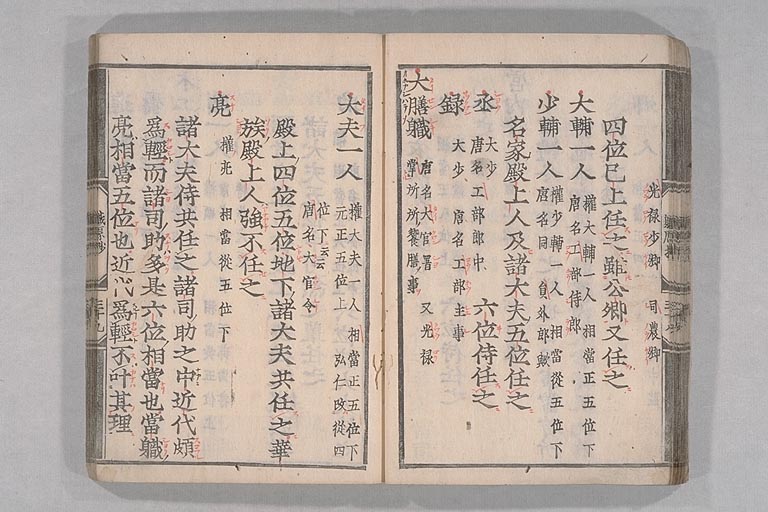 光禄少卿　司農卿
四位已上任之雖公卿又任之
大輔一人　權大輔一人　相當正五位下
唐名工部侍郎
少輔一人　權少輔一人　相當從五位下
唐名同　員外郎
名家殿上人及諸大夫五位任之
丞　大少　六位侍任之
唐名工部郎中
録　大少　唐名工部主事
大膳職　唐名大官署　又光禄
掌所所饗膳事
大夫一人　權大夫一人　相當正五位下
元正五位上　弘仁改從四
位下云云
唐名大官令
殿上四位五位地下諸大夫共任之華
族殿上人強不任之
亮　權亮　相當從五位下
諸大夫侍共任之諸司助之中近代頗
爲輕而諸司助多是六位相當也當職
亮相當五位也近代爲輕不叶其理